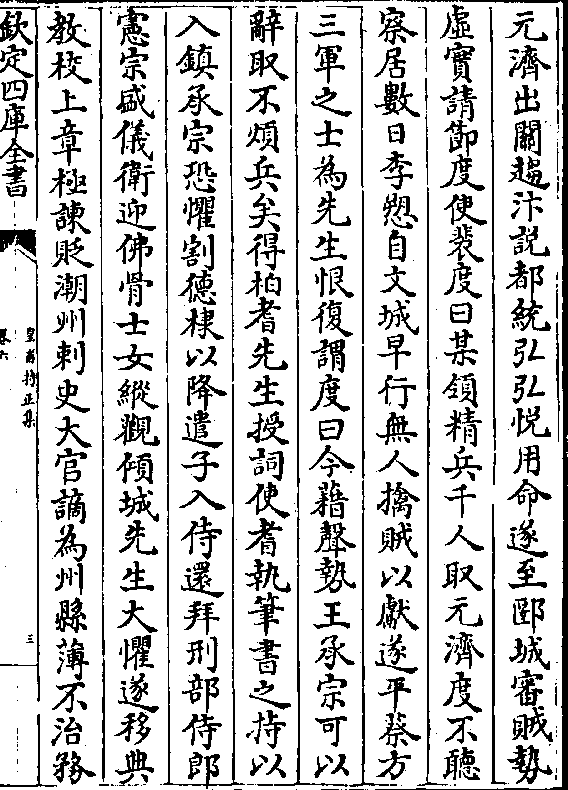 元濟出關趨汴説都統弘弘悦用命遂至郾城審賊勢
虛實請節度使裴度曰某領精兵千人取元濟度不聽
察居數日李愬自文城早行無人擒賊以獻遂平蔡方
三軍之士為先生恨復謂度曰今藉聲勢王承宗可以
辭取不煩兵矣得柏耆先生授詞使耆執筆書之持以
入鎮承宗恐懼割德棣以降遣子入侍還拜刑部侍郎
憲宗盛儀衛迎佛骨士女縱觀傾城先生大懼遂移典
教校上章極諫貶潮州刺史大官謫為州縣薄不治務
欽定四庫全書
皇甫持正集
卷六
三